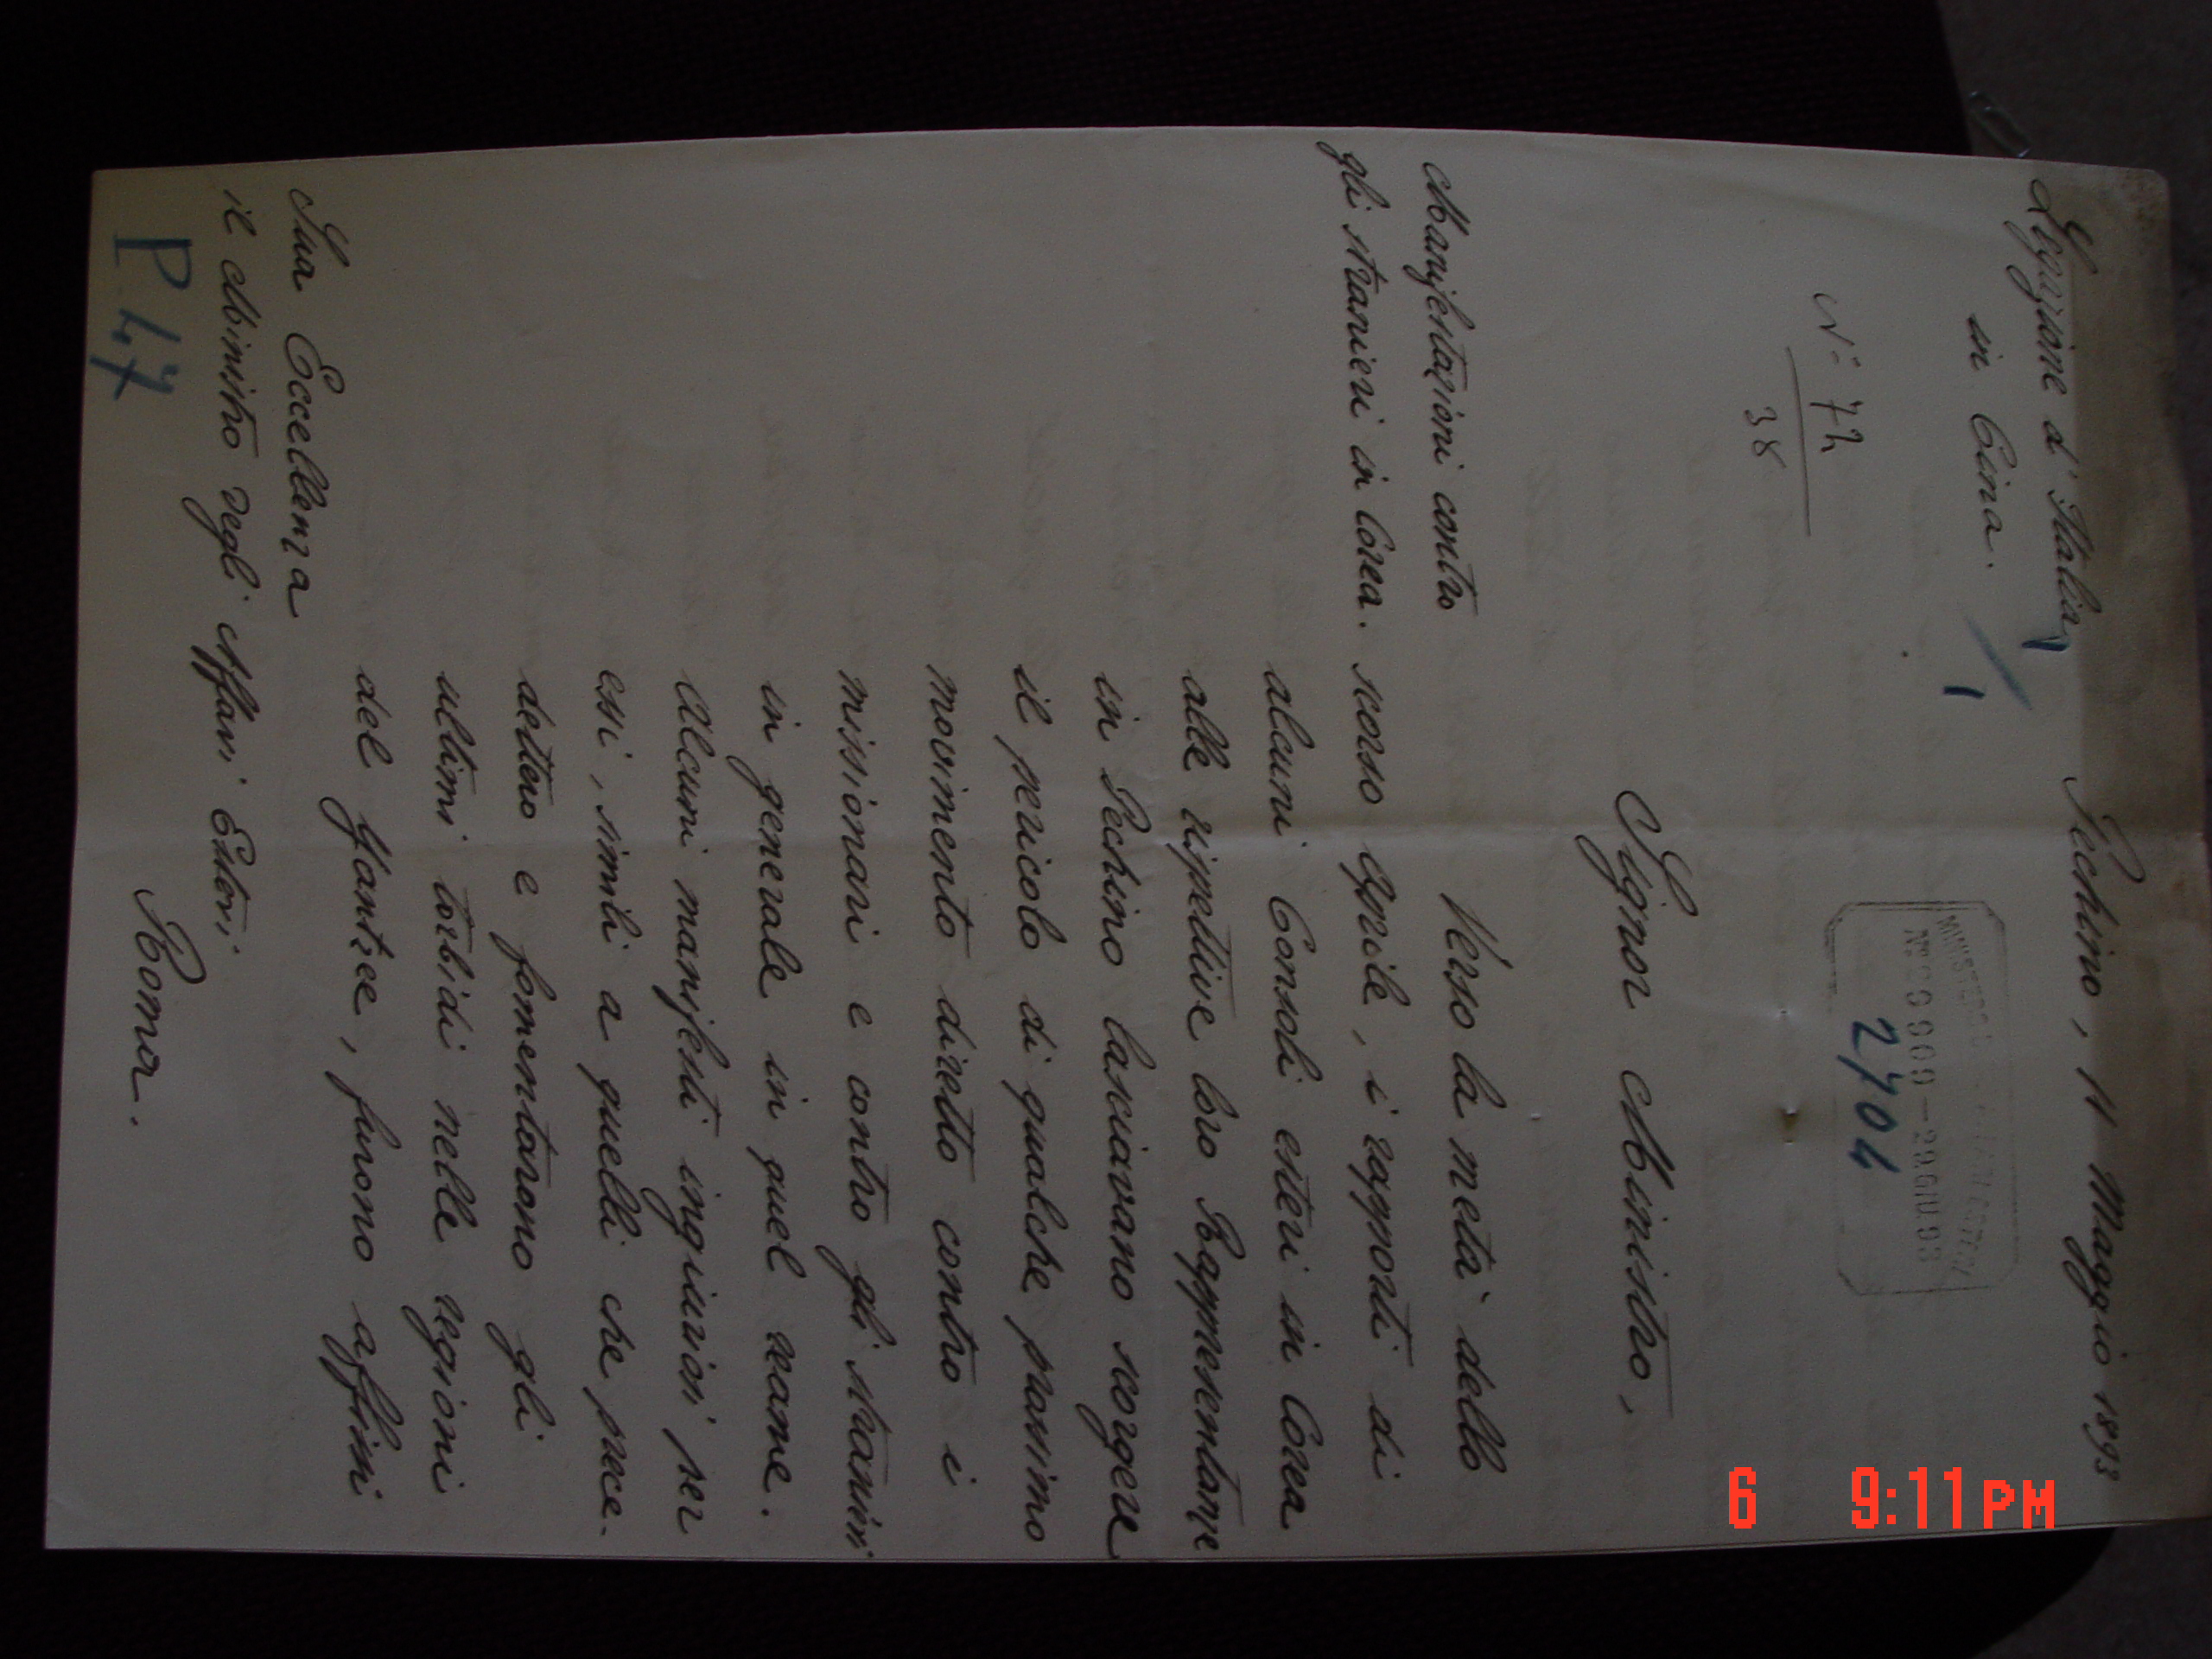 Legazione d'Italia
in Cina.
Pechino, 11 Maggio 1893
N: 72
38
MINISTERO
Nº 00000 - 22 GIU. 93
2704
Signor Ministro,
Manifestazioni contro
gli stranieri in Corea.
Verso la metà dello
scorso Aprile, i rapporti di
alcuni Consoli esteri in Corea
alle rispettive loro Rappresentanze
in Pechino lasciavano scorgere
il pericolo di qualche prossimo
movimento diretto contro i
missionari e contro gli stranieri
in generale in quel reame.
Alcuni manifesti ingiuriosi per
essi, simili a quelli che prece-
dettero e fomentarono gli
ultimi torbidi nelle regioni
del Yantzee, furono affissi
Sua Eccellenza
il Ministro degli Affari Esteri.
Roma.
P. 47
6 9:11PM